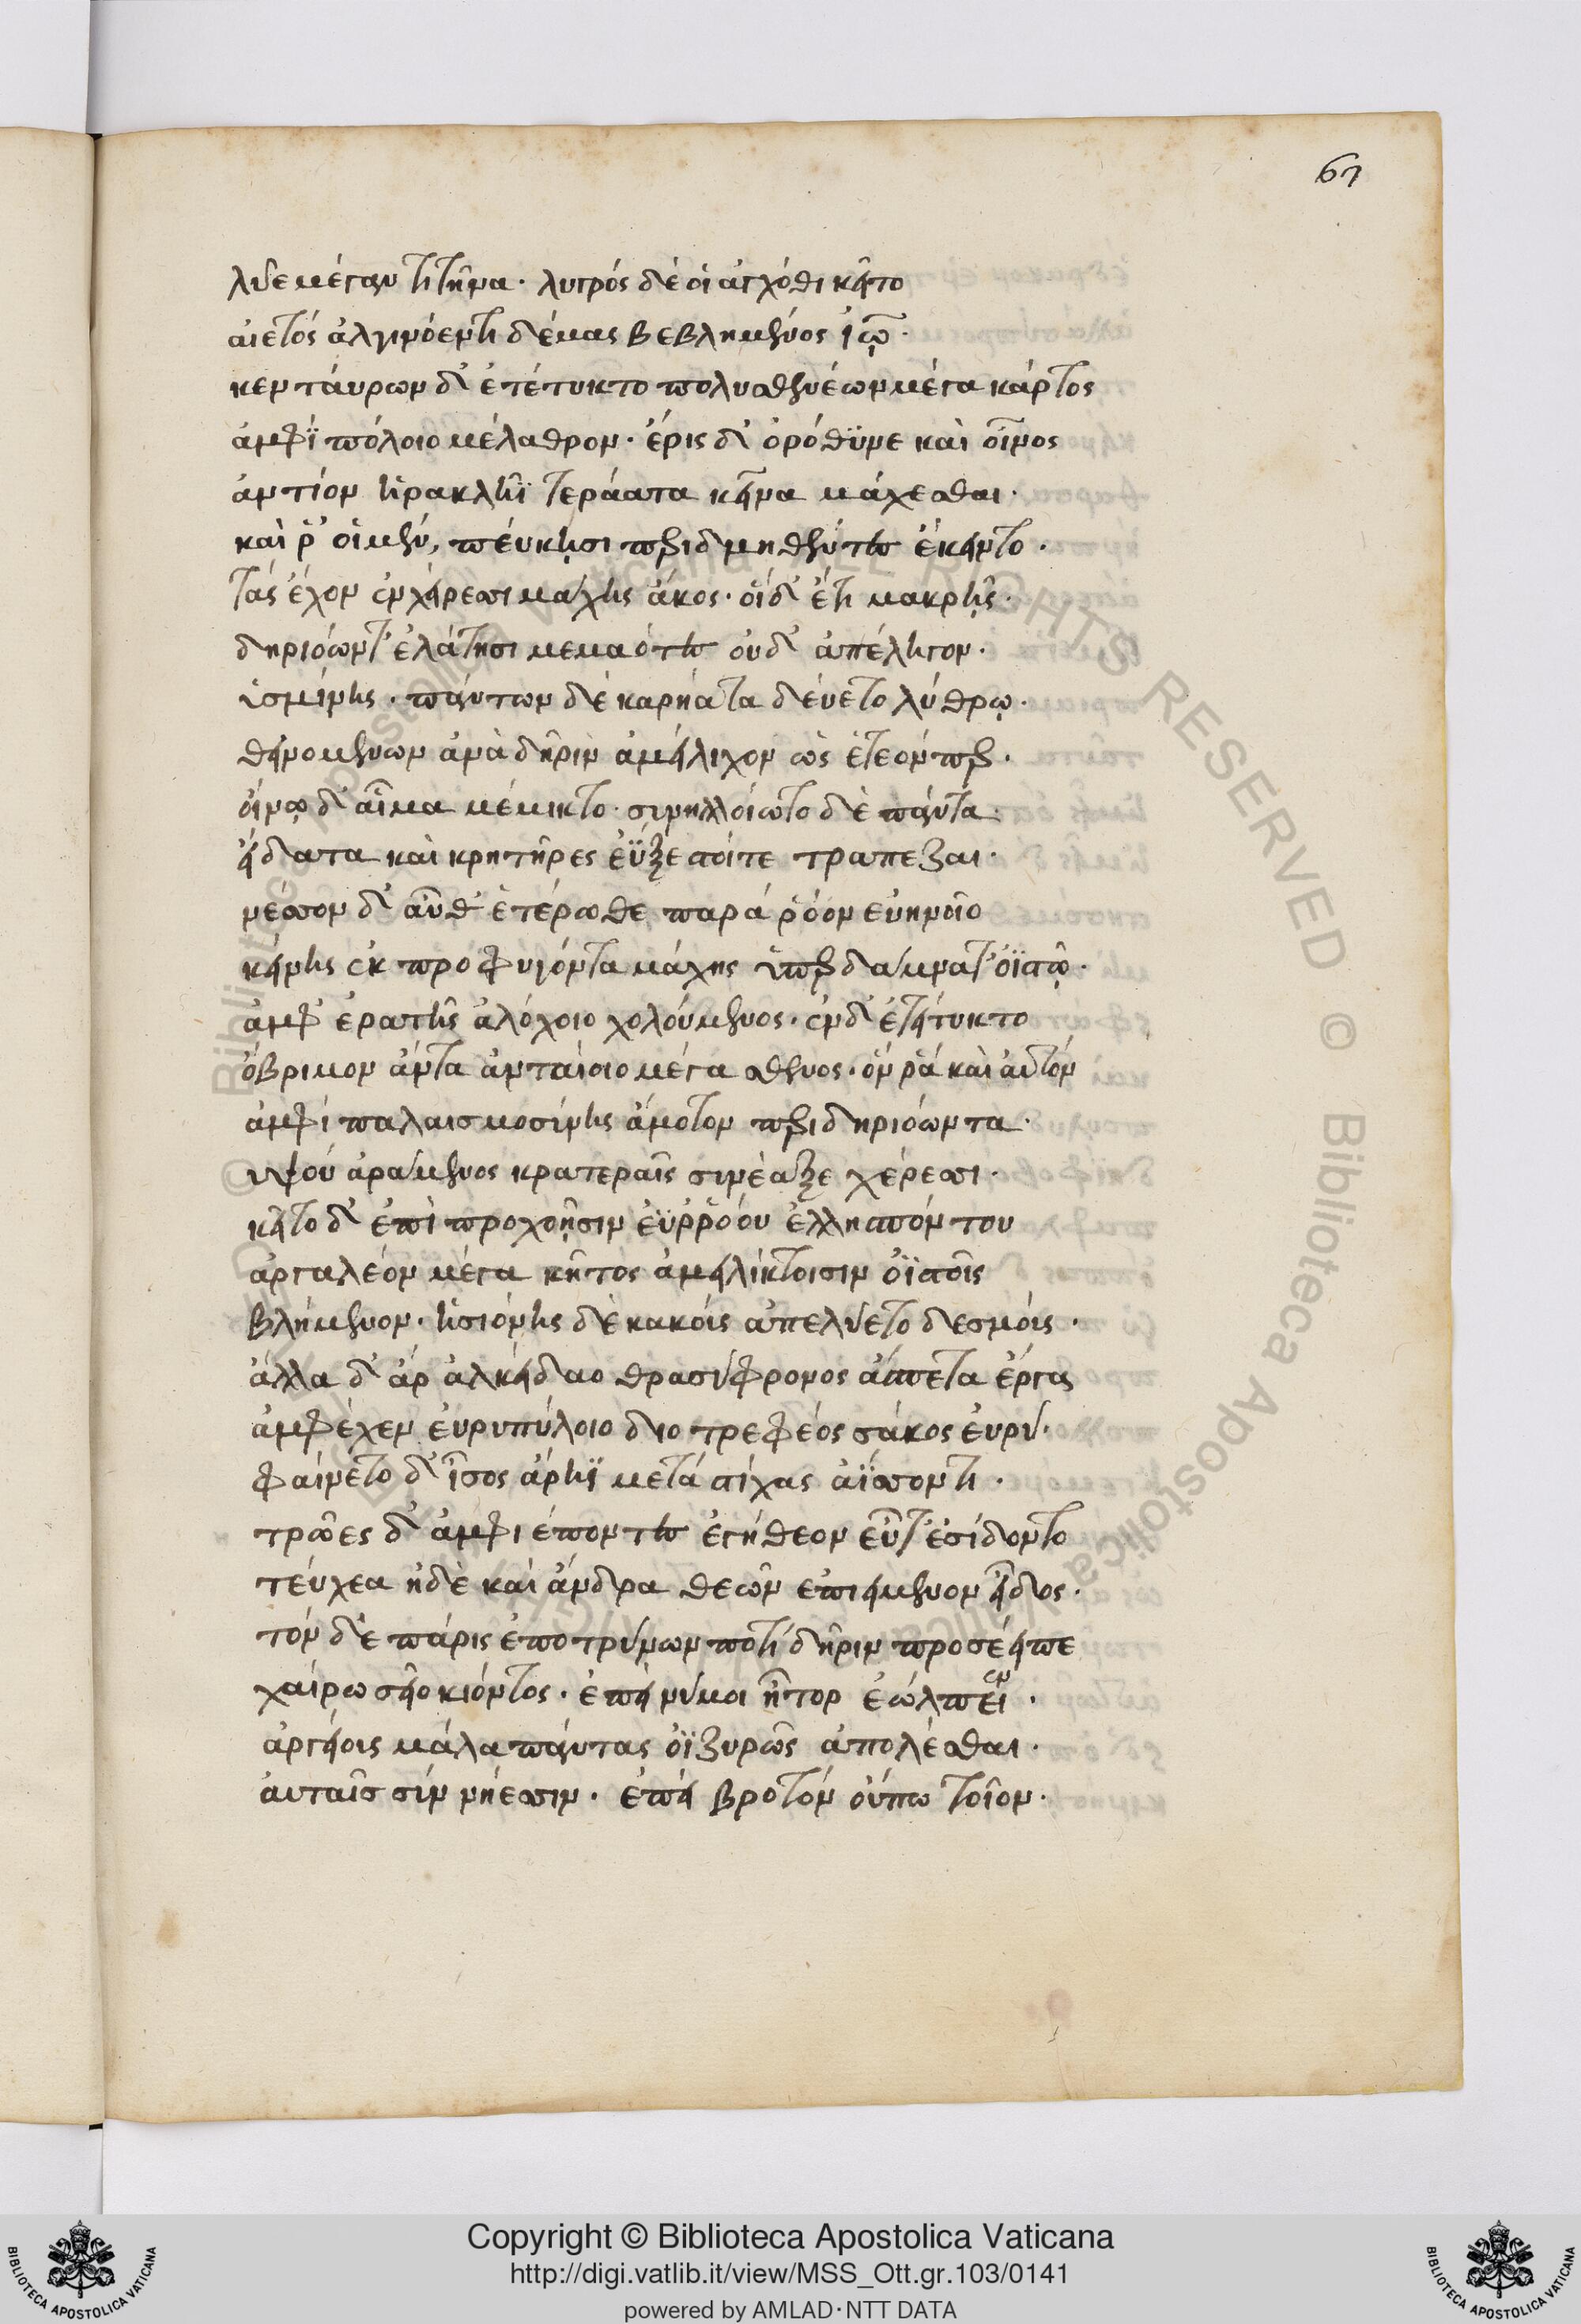 67
λῦε μέγαν τιτῆνα· λυγρός δέ οἱ ἀγχόθι κεῖτο
αἰετός ἀλγινόεντι δέμας βεβλημένος ἰῷ·
κενταύρων δ' ἐτέτυκτο πολυσθενέων μέγα κάρτος
ἀμφὶ πόλοιο μέλαθρον· ἔρις δ' ὀρόθϋνε καὶ οἶνος
ἀντίον ἡρακλῆϊ τεράατα κεῖνα μάχεσθαι·
καὶ ῥ' οἱ μὲν, πεύκῃσι περιδμηθέντες ἔκειντο·
τάς ἔχον ἐν χείρεσι μάχης ἄκος· οἵ δ' ἔτι μακρῇς·
δηριόωντ' ἐλάτῃσι μεμαότες οὐδ' ἀπέληγον·
ὑσμίνης· πάντων δὲ καρήατα δεύετο λύθρῳ·
θεινομένων ἀνὰ δῆριν ἀμείλιχον ὡς ἐτεόν περ·
οἴνῳ δ' αἷμα μέμικτο· συνηλλοίωτο δὲ πάντα·
εἴδατα καὶ κρητῆρες ἐΰξεστοίτε τραπεζαι·
νέσσον δ' αὖθ' ἑτέρωθε παρά ῥόον εὐηνοῖο
κείνης ἐκπροφυγόντα μάχης ὑπερδάμνατ' ὀϊστῷ·
ἀμφ' ἐρατῆς ἀλόχοιο χολούμενος· ἐν δ' ἐτέτυκτο
ὄβριμον ἄντα ἀνταίοιο μέγα σθένος· ὅν ῥά καὶ αὐτόν
ἀμφί παλαισμοσύνης ἄμοτον περιδηριόωντα·
ὑψοῦ ἀράμενος κρατεραῖς συνέαξε χέρεσσι·
κεῖτο δ' ἐπὶ προχοῇσιν ἐϋρρόου ἑλλησπόντου
ἀργαλέον μέγα κῆτος ἀμειλίκτοισιν ὀϊστοῖς
βλήμενον· ἡσιόνης δὲ κακοῖς ἀπελύετο δεσμοῖς·
ἄλλα δ' ἄρ ἀλκείδαο θρασύφρονος ἄσπετα ἔργα
ἀμφέχεν εὐρυπύλοιο διοτρεφέος σάκος εὐρύ·
φαίνετο δ' ἶσος ἄρηϊ μετά στίχας ἀΐσσοντι·
τρῶες δ' ἀμφιέποντες ἐγήθεον εὖτ' ἐσίδοντο
τεύχεα ἠδὲ καὶ ἄνδρα θεῶν ἐπιείμενον εἶδος·
τόν δὲ πάρις ἐποτρύνων ποτί δῆριν προσέειπε
χαίρω σεῖο κιόντος· ἐπεί νύ μοι ἦτορ ἐώλπει·
ἀργείοις μάλα πάντας ὀϊζυρῶς ἀπολέσθαι·
αὐταῖσ σύν νήεσσιν· ἐπεί βροτόν οὔπω τοῖον·
Copyright © Biblioteca Apostolica Vaticana
http://digi.vatlib.it/view/MSS_Ott.gr.103/0141
powered by AMLAD·NTT DATA